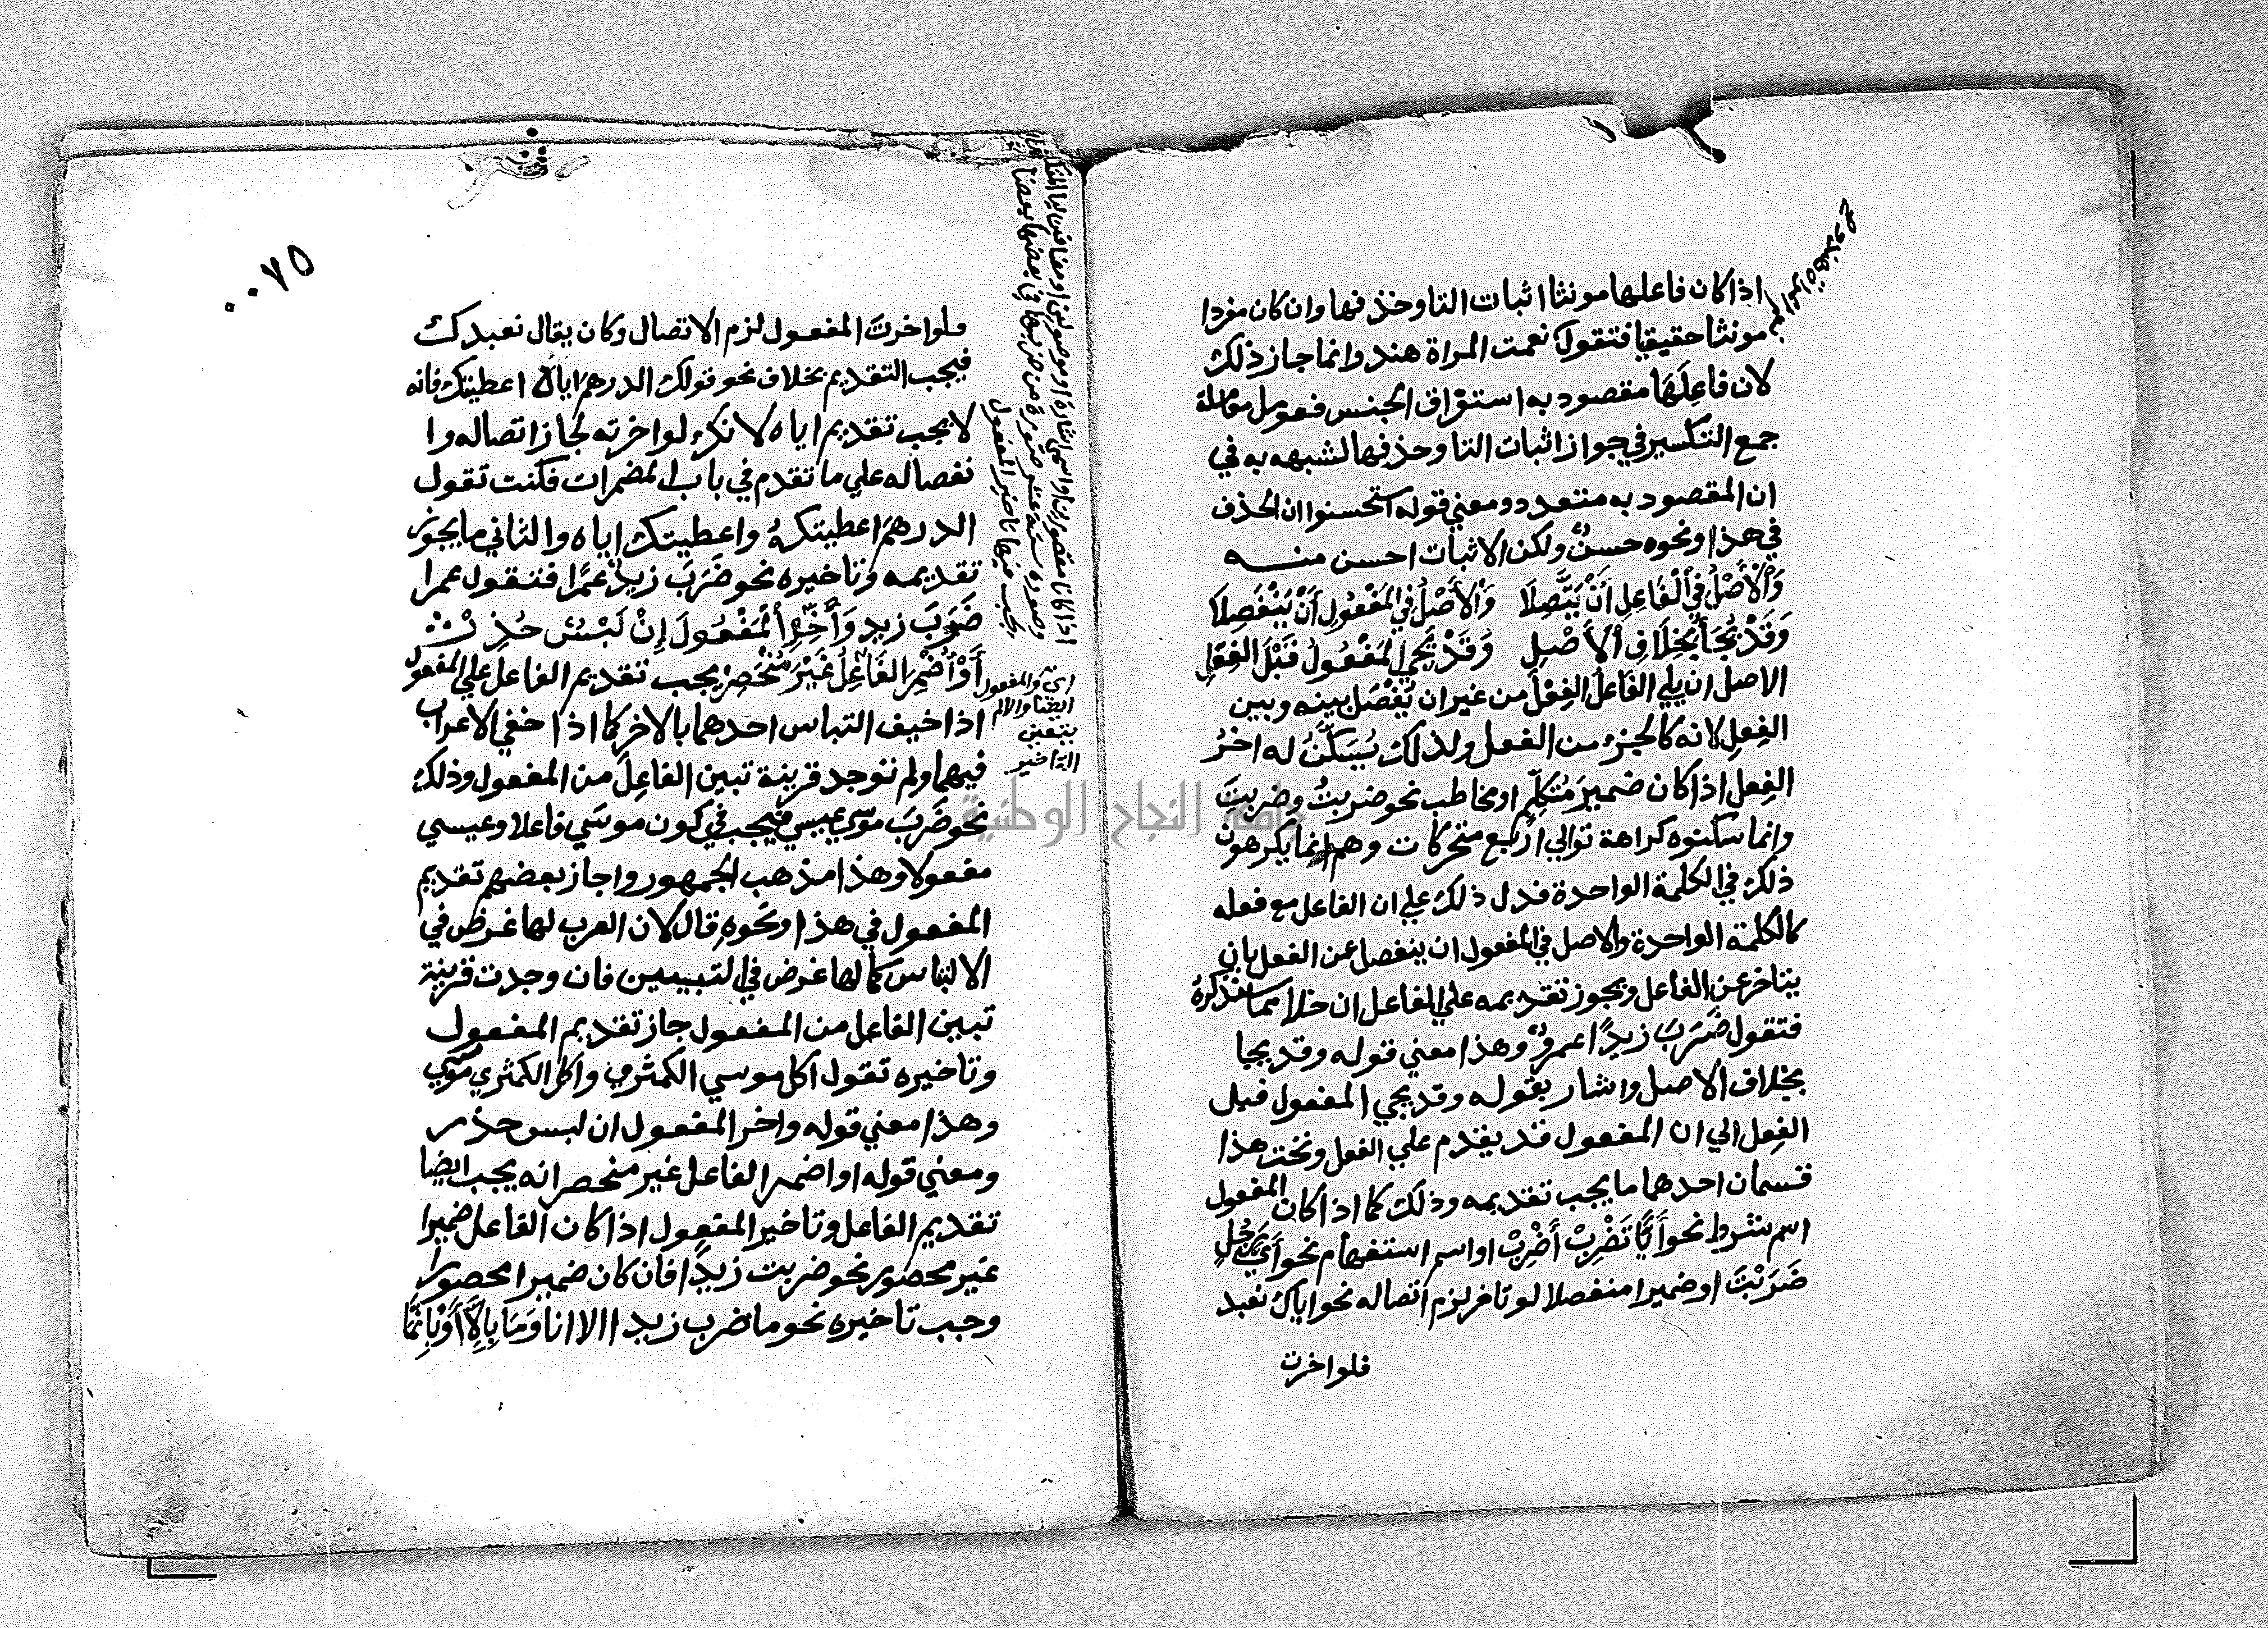 اذا كان فاعلها مونثا اثبات التا وحذفها وان كان مفردا
مونثا حقيقيا فتقول نعمت المراة هند وانما جاز ذلك
لان فاعِلَهَا مقصود به استغراق الجنس فعومل معاملة
جمع التكسير في جواز اثبات التا وحذفها لشبهه به في
ان المقصود به متعدد ومعني قوله استحسنوا ان الحذف
في هذا ونحوه حسنٌ ولكن الاثبات احسن منه
وَالْأَصْلُ فِي الْفَاعِلِ أَنْ يَتَّصِلَا وَالْأَصْلُ فِي الْمَفْعُولِ أَنْ يَنْفَصِلَا
وَقَدْ يُجَأُ بِخِلَافِ الْأَصْلِ وَقَدْ يَجِي الْمَفْعُولُ قَبْلَ الفِعْلِ
الاصل ان يلي الفَاعلُ الفِعْلَ من غير ان يُفْصَلَ بينه وبين
الفِعلِ لانه كالجزء من الفعل ولذلك يُسَكَّنُ له اخرُ
الفِعل اذا كان ضميرَ مُتَكَلِّمٍ او مخاطب نحو ضربتُ وضربتَ
وانما سكنوه كراهة توالي اربع متحركات وهم انما يكرهون
ذلك في الكلمة الواحدة فدل ذلك علي ان الفاعل مع فعله
كالكلمة الواحدة والاصل في المفعول ان ينفصل عن الفعل بان
يتاخر عن الفاعل ويجوز تقديمه علي الفاعل ان خلا مما سنذكره
فتقول ضَرَبَ زيدًا عمرٌو وهذا معني قوله وقد يجا
بخلاف الاصل واشار بقوله وقد يجي المفعول قبل
الفِعل الي ان المفعول قد يقدم علي الفعل وتحت هذا
قسمان احدهما ما يجب تقديمه وذلك كما اذا كان المفعول
اسم شرط نحو أَيًّا تَضْرِبْ أَضْرِبْ او اسم استفهام نحو أَيَّ رَجُلٍ
ضَرَبْتَ او ضميرا منفصلا لو تاخر لزم اتصاله نحو اياك نعبد
فلو اخرت
٠٠٧٥
فلو اخرتَ المفعول لزم الاتصال وكان يقال نعبدك
فيجب التقديم بخلاف نحو قولك الدرهم اياه اعطيتك فانه
لا يجب تقديم اياه لانك لو اخرته لجاز اتصاله وا
نفصاله علي ما تقدم في باب المضمرات فكنت تقول
الدرهمَ اعطيتكهُ واعطيتك اياه والثاني ما يجوز
تقديمه وتاخيره نحو ضَرَبَ زيدٌ عمرًا فتقول عمرا
ضَرَبَ زيد وَأَخِّرِ الْمَفْعُولَ إِنْ لَبْسٌ حُذِرْ
أَوْ أُضْمِرَ الفَاعِلُ غَيْرَ مُنْحَصِرْ يجب تقديم الفاعل علي المفعول
اذا خيف التباس احدهما بالاخر كما اذا خفي الاعراب
فيهما ولم توجد قرينة تبين الفاعِلَ من المفعول وذلك
نحو ضَرَبَ موسي عيسي فيجب في كون موسَي فاعلا وعيسي
مفعولا وهذا مذهب الجمهور واجاز بعضهم تقديم
المفعول في هذا ونحوهِ قال لان العرب لها غرض في
الالباس كما لها غرض في التبيين فان وجدت قرينة
تبين الفاعل من المفعول جاز تقديم المفعول
وتاخيره تقول اكل موسي الكمثري واكل الكمثري موسي
وهذا معني قوله واخر المفعول ان لبس حذر
ومعني قوله او اضمر الفاعل غير منحصر انه يجب ايضا
تقديم الفاعل وتاخير المفعول اذا كان الفاعل ضميرا
غير محصور نحو ضربت زيدًا فان كان ضميرا محصورا
وجب تاخيره نحو ما ضرب زيدا الا انا وَمَا بِإِلَّا أَوْ بِإِنَّمَا
اذا كانا مقصورين او اسمي اشارة او موصولين او مضافين ليا المتكلم
وصوره ستة عشر صورة من ضربها في بعضها بعضا
يجب فيها تاخير المفعول
جامعة النجاح الوطنية